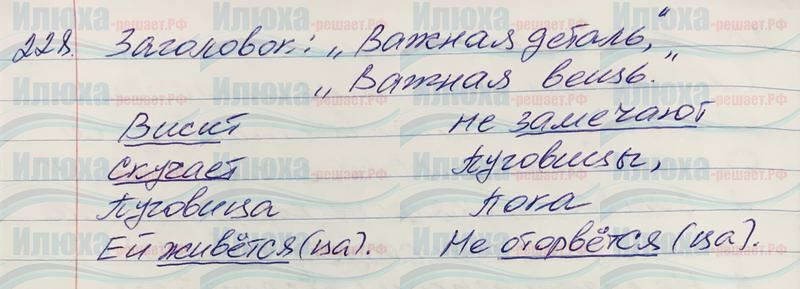 228. Заголовок: „Важная деталь,"
„Важная вещь."
Висит не замечают
Скучает Пуговицы,
Пуговица Пока
Ей живётся (ца). Не оторвётся (ца).
Илюха-решает.РФ